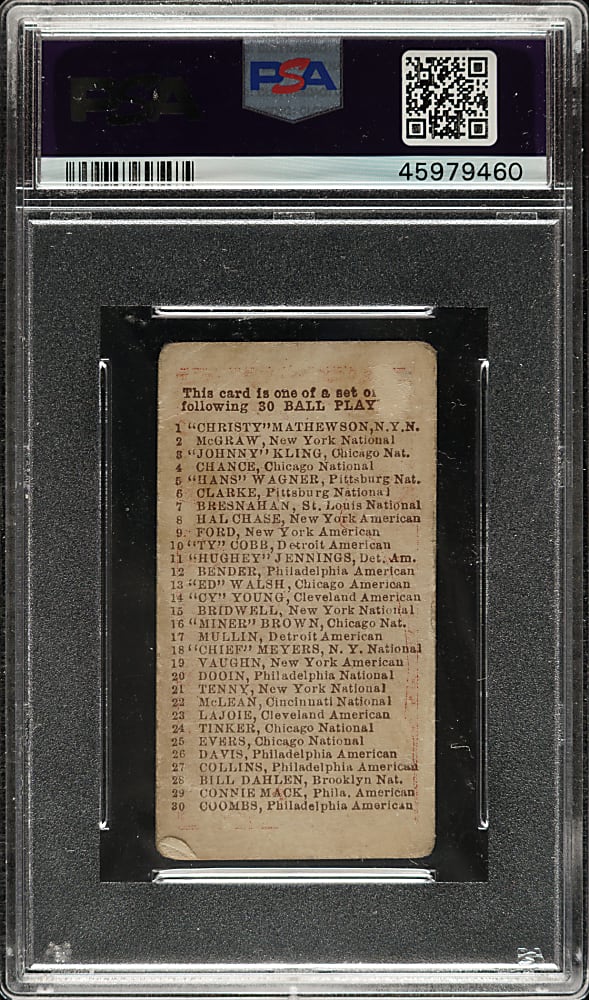 PSA
PSA
45979460
This card is one of a set of
following 30 BALL PLAY
1 "CHRISTY" MATHEWSON, N.Y.N.
2 McGRAW, New York National
3 "JOHNNY" KLING, Chicago Nat.
4 CHANCE, Chicago National
5 "HANS" WAGNER, Pittsburg Nat.
6 CLARKE, Pittsburg National
7 BRESNAHAN, St. Louis National
8 HAL CHASE, New York American
9 FORD, New York American
10 "TY" COBB, Detroit American
11 "HUGHEY" JENNINGS, Det. Am.
12 BENDER, Philadelphia American
13 "ED" WALSH, Chicago American
14 "CY" YOUNG, Cleveland American
15 BRIDWELL, New York National
16 "MINER" BROWN, Chicago Nat.
17 MULLIN, Detroit American
18 "CHIEF" MEYERS, N. Y. National
19 VAUGHN, New York American
20 DOOIN, Philadelphia National
21 TENNY, New York National
22 McLEAN, Cincinnati National
23 LAJOIE, Cleveland American
24 TINKER, Chicago National
25 EVERS, Chicago National
26 DAVIS, Philadelphia American
27 COLLINS, Philadelphia American
28 BILL DAHLEN, Brooklyn Nat.
29 CONNIE MACK, Phila. American
30 COOMBS, Philadelphia American